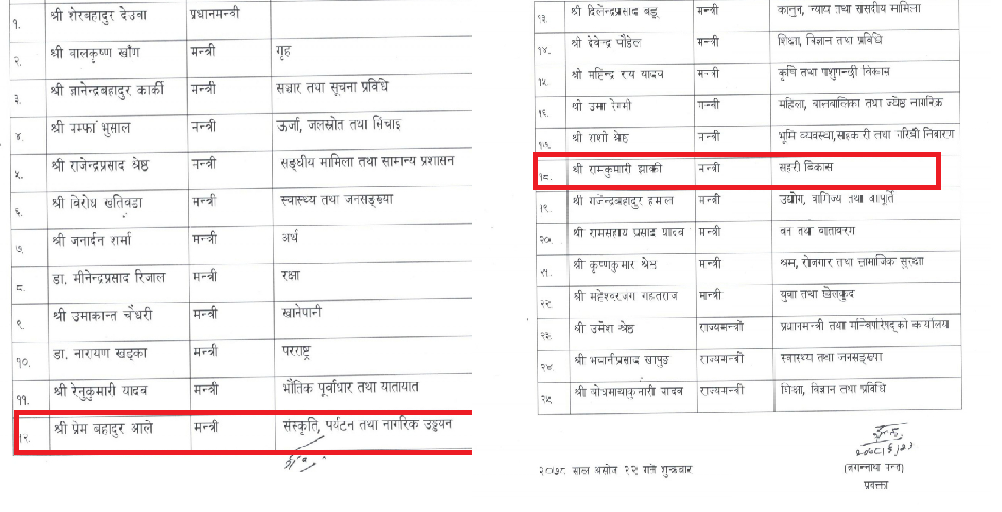 १. श्री शेरबहादुर देउवा प्रधानमन्त्री
२. श्री बालकृष्ण खाँण मन्त्री गृह
३. श्री ज्ञानेन्द्रबहादुर कार्की मन्त्री सञ्चार तथा सूचना प्रविधि
४. श्री पम्फा भुसाल मन्त्री ऊर्जा, जलस्रोत तथा सिंचाइ
५. श्री राजेन्द्रप्रसाद श्रेष्ठ मन्त्री सङ्घीय मामिला तथा सामान्य प्रशासन
६. श्री विरोध खतिवडा मन्त्री स्वास्थ्य तथा जनसङ्ख्या
७. श्री जनार्दन शर्मा मन्त्री अर्थ
८. डा. मीनेन्द्रप्रसाद रिजाल मन्त्री रक्षा
९. श्री उमाकान्त चौधरी मन्त्री खानेपानी
१०. डा. नारायण खड्का मन्त्री परराष्ट्र
११. श्री रेनुकुमारी यादव मन्त्री भौतिक पूर्वाधार तथा यातायात
१२. श्री प्रेम बहादुर आले मन्त्री संस्कृति, पर्यटन तथा नागरिक उड्डयन
१३. श्री दिलेन्द्रप्रसाद बडू मन्त्री कानुन, न्याय तथा संसदीय मामिला
१४. श्री देवेन्द्र पौडेल मन्त्री शिक्षा, विज्ञान तथा प्रविधि
१५. श्री महिन्द्र राय यादव मन्त्री कृषि तथा पशुपन्छी विकास
१६. श्री उमा रेग्मी मन्त्री महिला, बालबालिका तथा ज्येष्ठ नागरिक
१७. श्री शशी श्रेष्ठ मन्त्री भूमि व्यवस्था, सहकारी तथा गरिबी निवारण
१८. श्री रामकुमारी झाक्री मन्त्री सहरी विकास
१९. श्री गजेन्द्रबहादुर हमाल मन्त्री उद्योग, वाणिज्य तथा आपूर्ति
२०. श्री रामसहाय प्रसाद यादव मन्त्री वन तथा वातावरण
२१. श्री कृष्णकुमार श्रेष्ठ मन्त्री श्रम, रोजगार तथा सामाजिक सुरक्षा
२२. श्री महेश्वरजंग गहतराज मन्त्री युवा तथा खेलकुद
२३. श्री उमेश श्रेष्ठ राज्यमन्त्री प्रधानमन्त्री तथा मन्त्रिपरिषद्को कार्यालय
२४. श्री भवानीप्रसाद खापुङ राज्यमन्त्री स्वास्थ्य तथा जनसङ्ख्या
२५. श्री बोधमायाकुमारी यादव राज्यमन्त्री शिक्षा, विज्ञान तथा प्रविधि
२०७८ साल असोज २२ गते शुक्रवार
प्रवक्ता